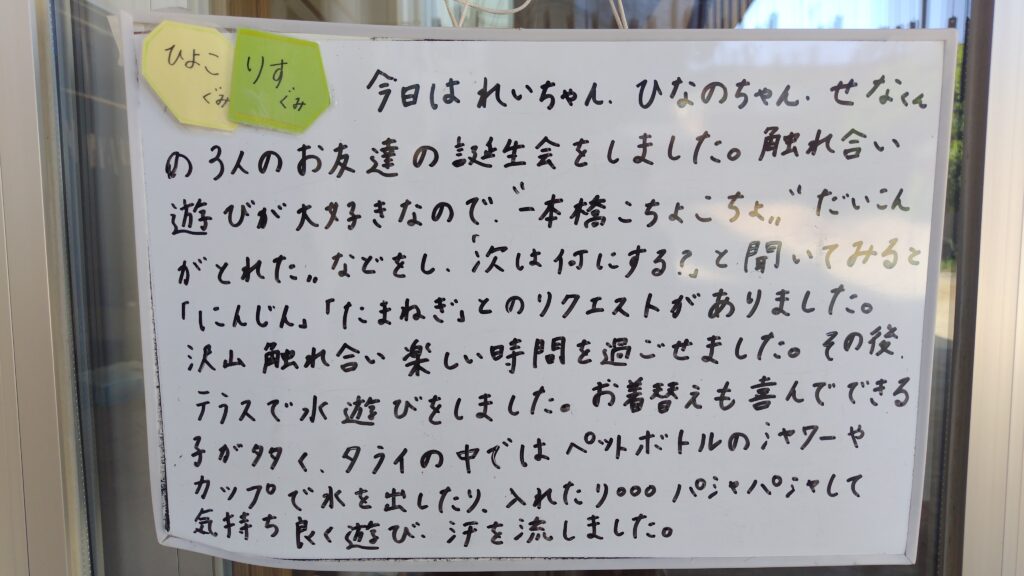 ひよこぐみ
りすぐみ
今日は れいちゃん、ひなのちゃん、せなくん
の3人のお友達の誕生会をしました。触れ合い
遊びが大好きなので、〝一本橋こちょこちょ〟〝だいこん
がとれた〟などをし、「次は何にする?」と聞いてみると
「にんじん」「たまねぎ」とのリクエストがありました。
沢山触れ合い楽しい時間を過ごせました。その後、
テラスで水遊びをしました。お着替えも喜んでできる
子が多く、タライの中ではペットボトルのシャワーや
カップで水を出したり、入れたり。。。パシャパシャして
気持ち良く遊び、汗を流しました。